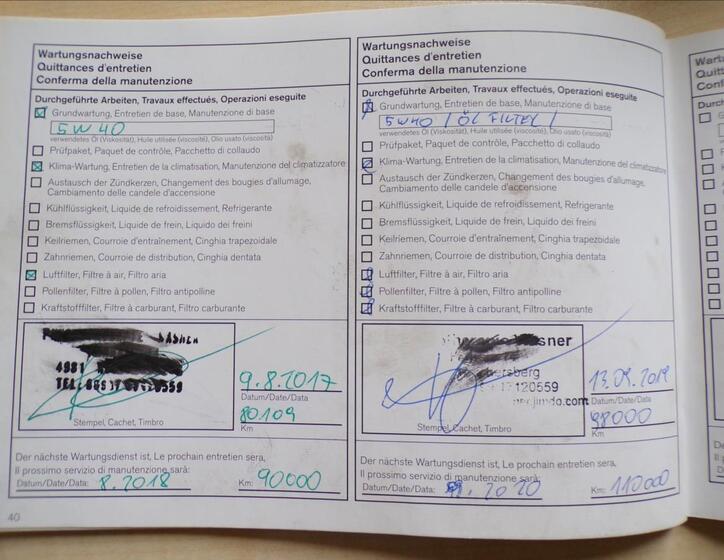 Wartungsnachweise
Quittances d'entretien
Conferma della manutenzione
Durchgeführte Arbeiten, Travaux effectués, Operazioni eseguite
Grundwartung, Entretien de base, Manutenzione di base
5W40
verwendetes Öl (Viskosität), Huile utilisée (viscosité), Olio usato (viscosità)
Prüfpaket, Paquet de contrôle, Pacchetto di collaudo
Klima-Wartung, Entretien de la climatisation, Manutenzione del climatizzatore
Austausch der Zündkerzen, Changement des bougies d'allumage,
Cambiamento delle candele d'accensione
Kühlflüssigkeit, Liquide de refroidissement, Refrigerante
Bremsflüssigkeit, Liquide de frein, Liquido dei freini
Keilriemen, Courroie d'entraînement, Cinghia trapezoidale
Zahnriemen, Courroie de distribution, Cinghia dentata
Luftfilter, Filtre à air, Filtro aria
Pollenfilter, Filtre à pollen, Filtro antipolline
Kraftstofffilter, Filtre à carburant, Filtro carburante
4981
Stempel, Cachet, Timbro
9.8.2017
Datum/Date/Data
80109
Km
Der nächste Wartungsdienst ist, Le prochain entretien sera,
Il prossimo servizio di manutenzione sarà:
Datum/Date/Data: 8.2018 Km: 90000
40
Wartungsnachweise
Quittances d'entretien
Conferma della manutenzione
Durchgeführte Arbeiten, Travaux effectués, Operazioni eseguite
Grundwartung, Entretien de base, Manutenzione di base
5W40 / ÖL FILTER /
verwendetes Öl (Viskosität), Huile utilisée (viscosité), Olio usato (viscosità)
Prüfpaket, Paquet de contrôle, Pacchetto di collaudo
Klima-Wartung, Entretien de la climatisation, Manutenzione del climatizzatore
Austausch der Zündkerzen, Changement des bougies d'allumage,
Cambiamento delle candele d'accensione
Kühlflüssigkeit, Liquide de refroidissement, Refrigerante
Bremsflüssigkeit, Liquide de frein, Liquido dei freini
Keilriemen, Courroie d'entraînement, Cinghia trapezoidale
Zahnriemen, Courroie de distribution, Cinghia dentata
Luftfilter, Filtre à air, Filtro aria
Pollenfilter, Filtre à pollen, Filtro antipolline
Kraftstofffilter, Filtre à carburant, Filtro carburante
Stempel, Cachet, Timbro
13.09.2019
Datum/Date/Data
98000
Km
Der nächste Wartungsdienst ist, Le prochain entretien sera,
Il prossimo servizio di manutenzione sarà:
Datum/Date/Data: 2020 Km: 110000